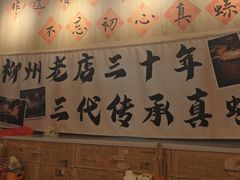 不忘初心真螺
柳州老店三十年
三代传承真螺